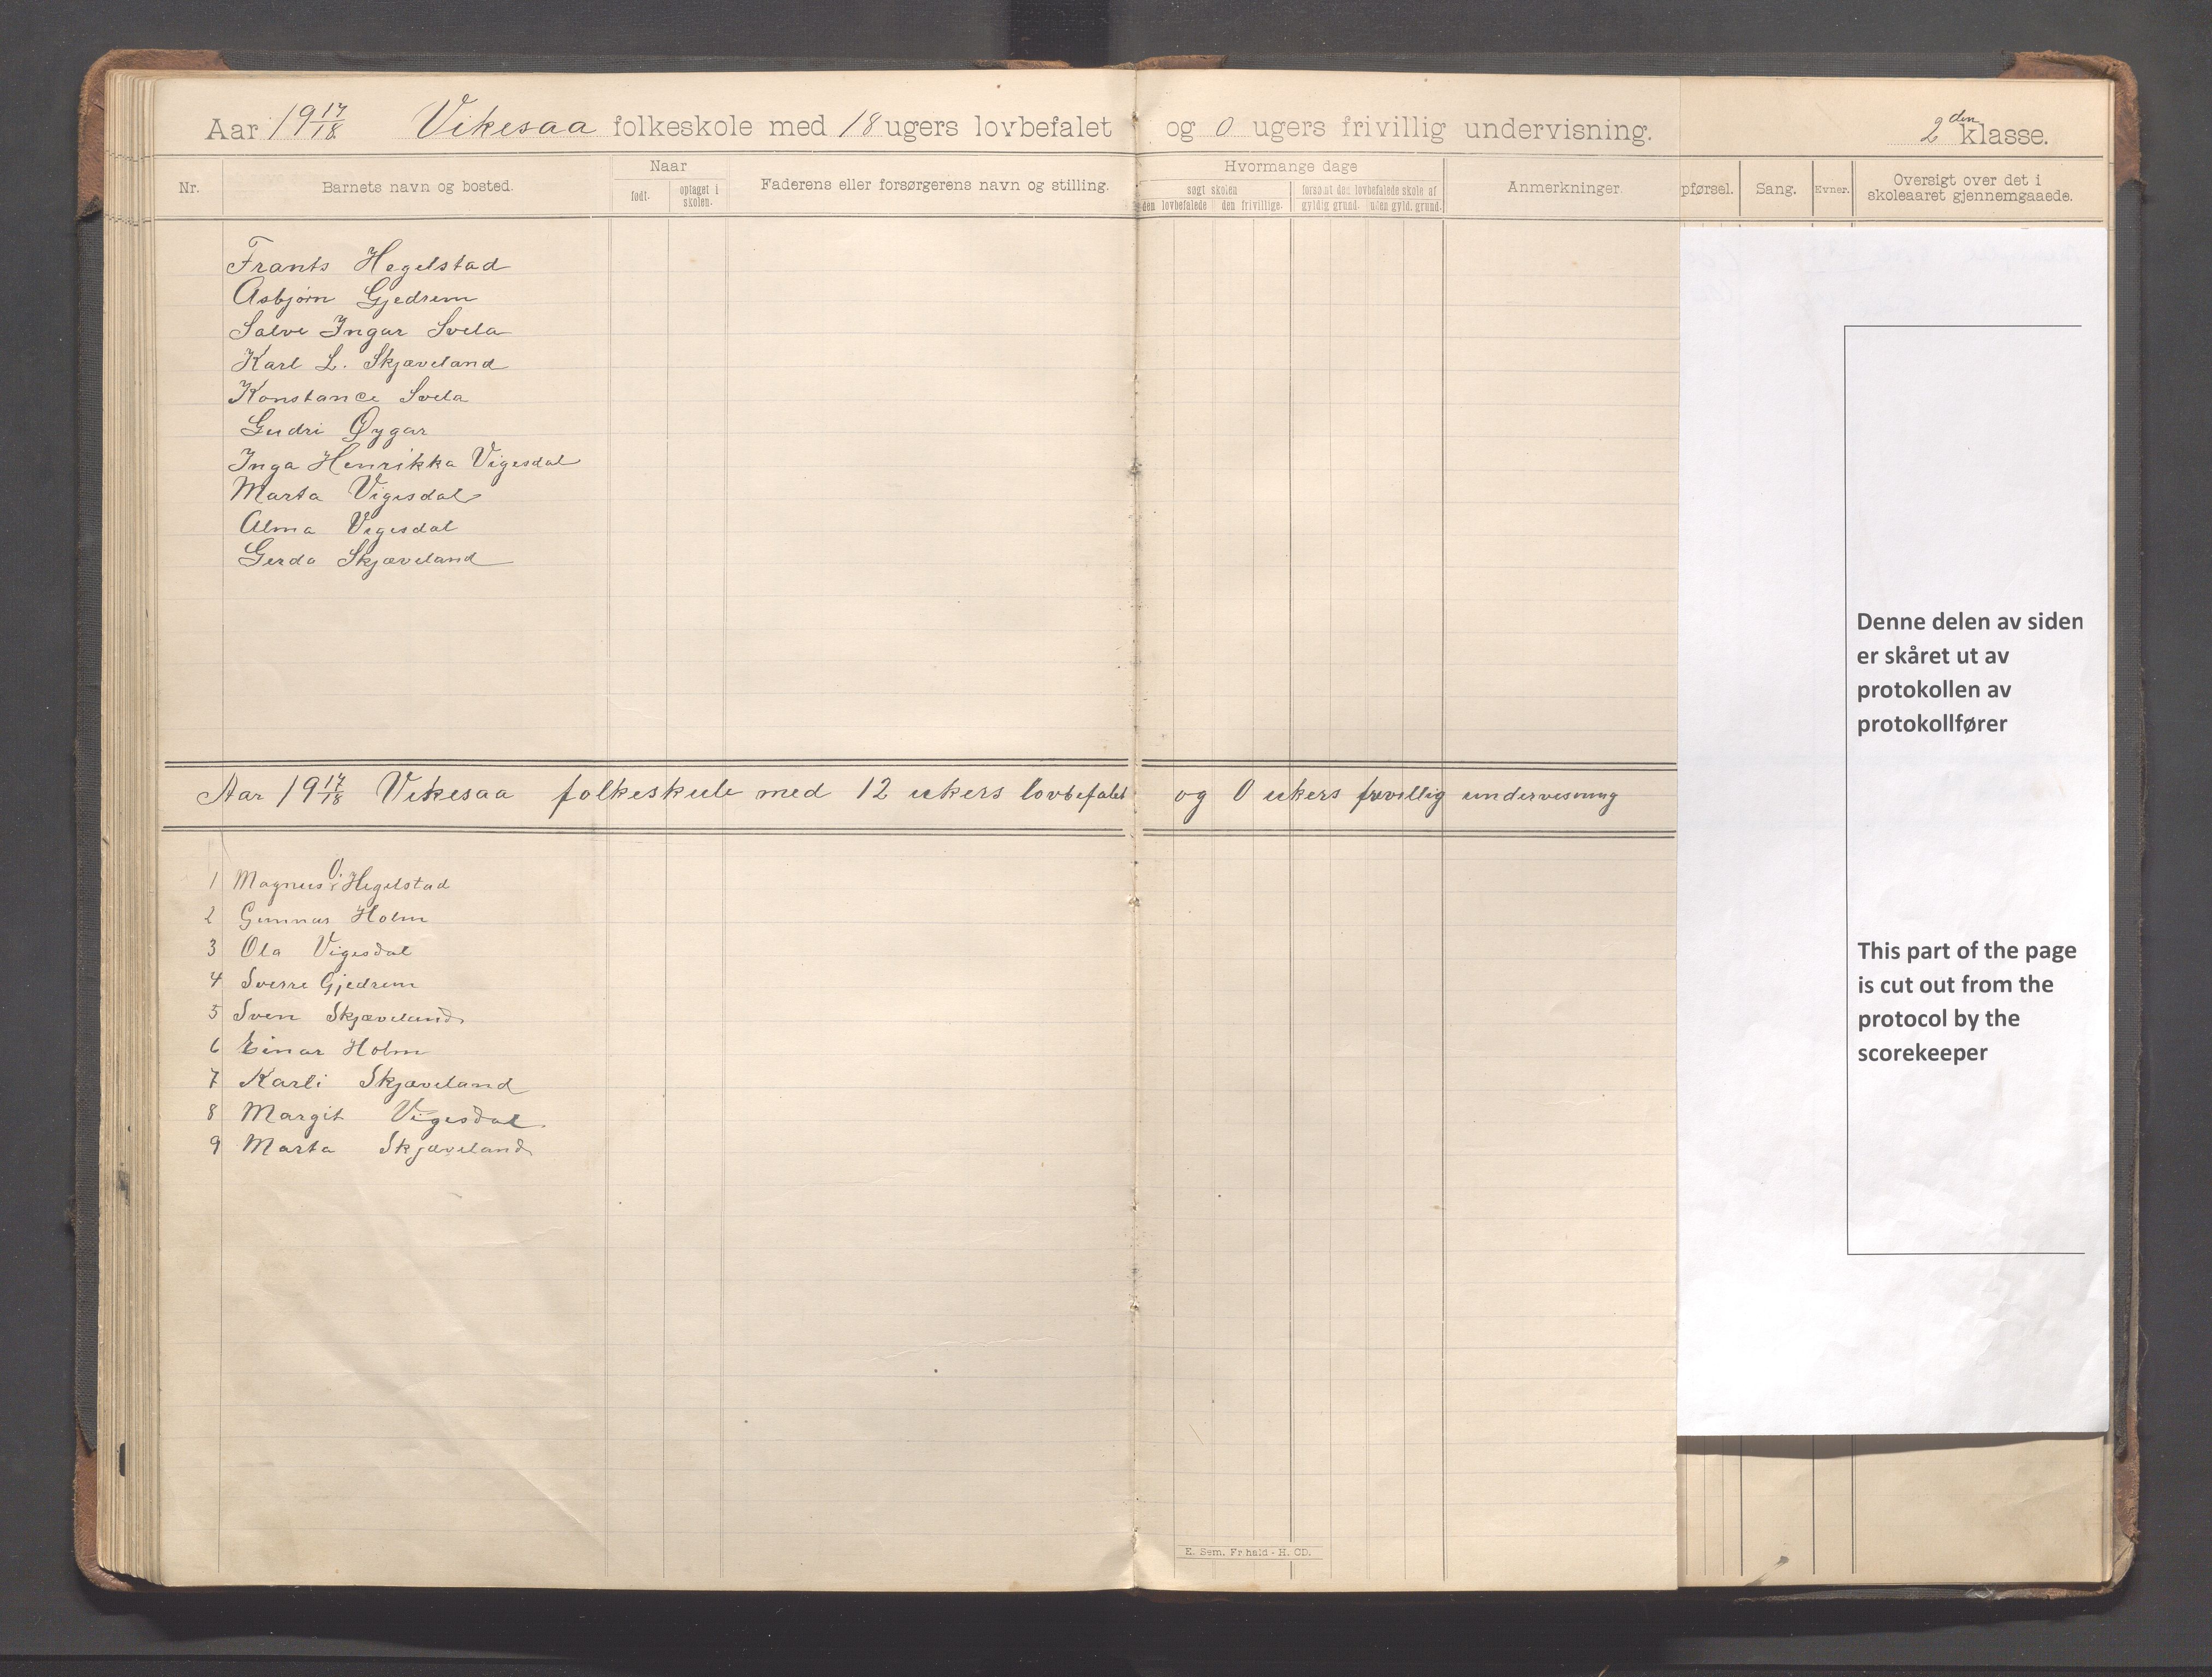 Aar 19 17/18 Vikesaa folkeskole med 18 ugers lovbefalet og 0 ugers frivillig undervisning. 2den klasse.
Nr. Barnets navn og bosted. Naar født. optaget i skolen. Faderens eller forsørgerens navn og stilling. Hvormange dage søgt skolen den lovbefalede den frivillige. forsømt den lovbefalede skole af gyldig grund. uden gyld. grund. Anmerkninger. pførsel. Sang. Evner. Oversigt over det i skoleaaret gjennemgaaede.
Frants Hegelstad
Asbjørn Gjedrem
Salve Ingar Svela
Karl L. Skjæveland
Konstance Svela
Gudri Øygar
Inga Henrikka Vigesdal
Marta Vigesdal
Alma Vigesdal
Gerda Skjæveland
Aar 19 17/18 Vikesaa folkeskule med 12 ukers lovbefalet og 0 ukers frivillig undervisning
1 Magnus O. Hegelstad
2 Gunnar Holm
3 Ola Vigesdal
4 Sverre Gjedrem
5 Sven Skjæveland
6 Einar Holm
7 Karli Skjæveland
8 Margit Vigesdal.
9 Marta Skjæveland
E. Sem. Fr.hald - H. CD.
Denne delen av siden
er skåret ut av
protokollen av
protokollfører
This part of the page
is cut out from the
protocol by the
scorekeeper